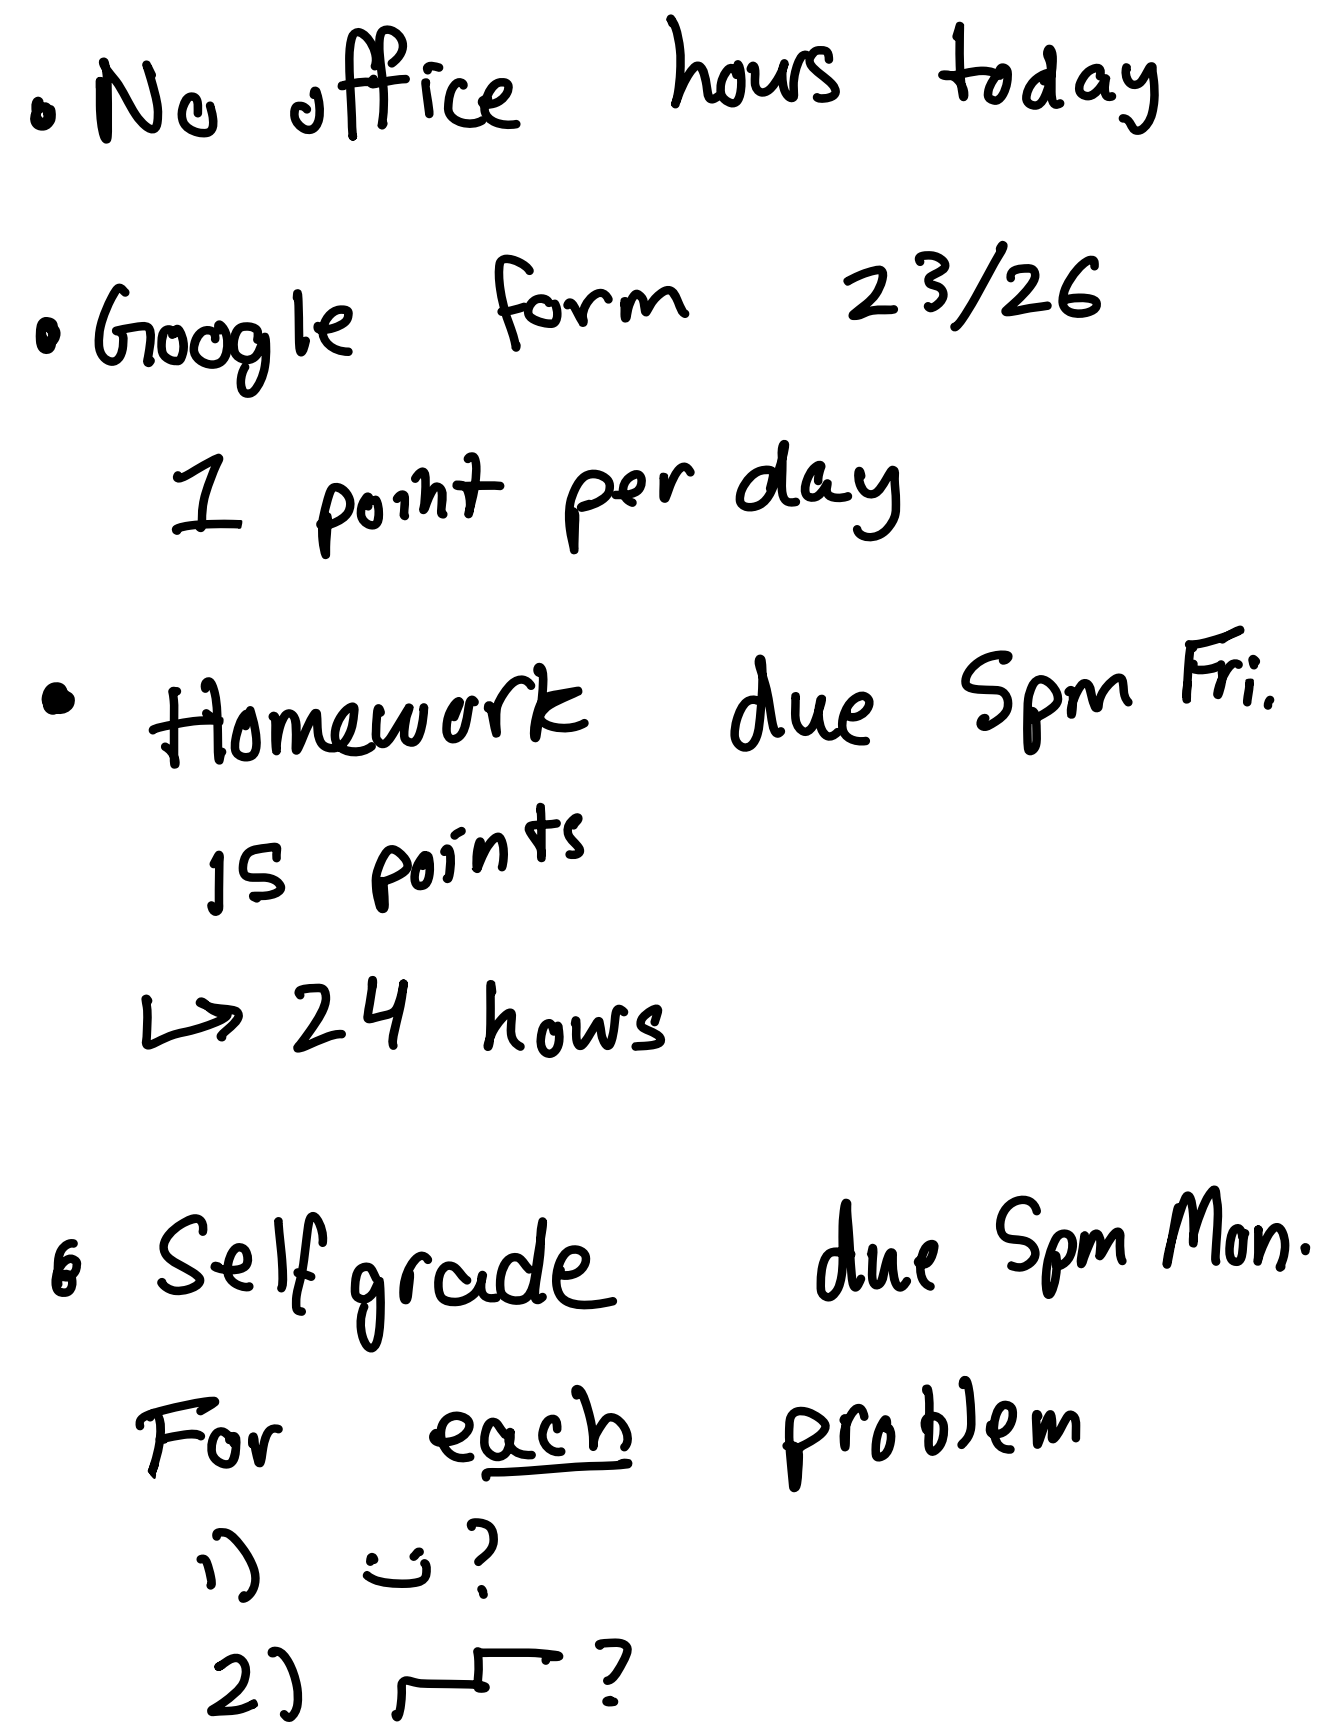 • No office hours today
• Google form 23/26
1 point per day
• Homework due 5pm Fri.
15 points
↳ 24 hours
• Self grade due 5pm Mon.
For each problem
1) ☺?
2) ?